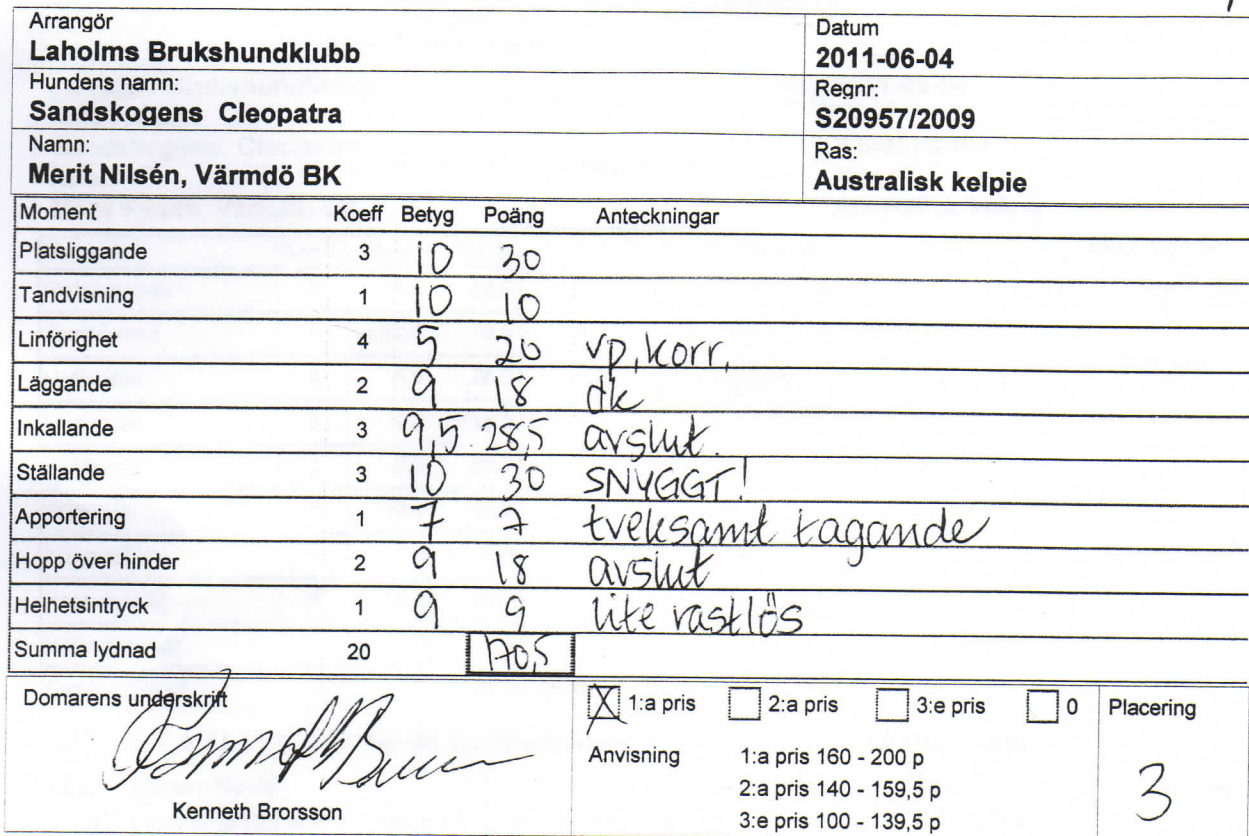 Arrangör Datum
Laholms Brukshundklubb 2011-06-04
Hundens namn: Regnr:
Sandskogens Cleopatra S20957/2009
Namn: Ras:
Merit Nilsén, Värmdö BK Australisk kelpie
Moment Koeff Betyg Poäng Anteckningar
Platsliggande 3 10 30
Tandvisning 1 10 10
Linförighet 4 5 20 vp, korr,
Läggande 2 9 18 dk
Inkallande 3 9,5 28,5 avslut.
Ställande 3 10 30 SNYGGT!
Apportering 1 7 7 tveksamt tagande
Hopp över hinder 2 9 18 avslut
Helhetsintryck 1 9 9 lite rastlös
Summa lydnad 20 170,5
Domarens underskrift X 1:a pris 2:a pris 3:e pris 0 Placering
Anvisning 1:a pris 160 - 200 p
2:a pris 140 - 159,5 p 3
Kenneth Brorsson 3:e pris 100 - 139,5 p